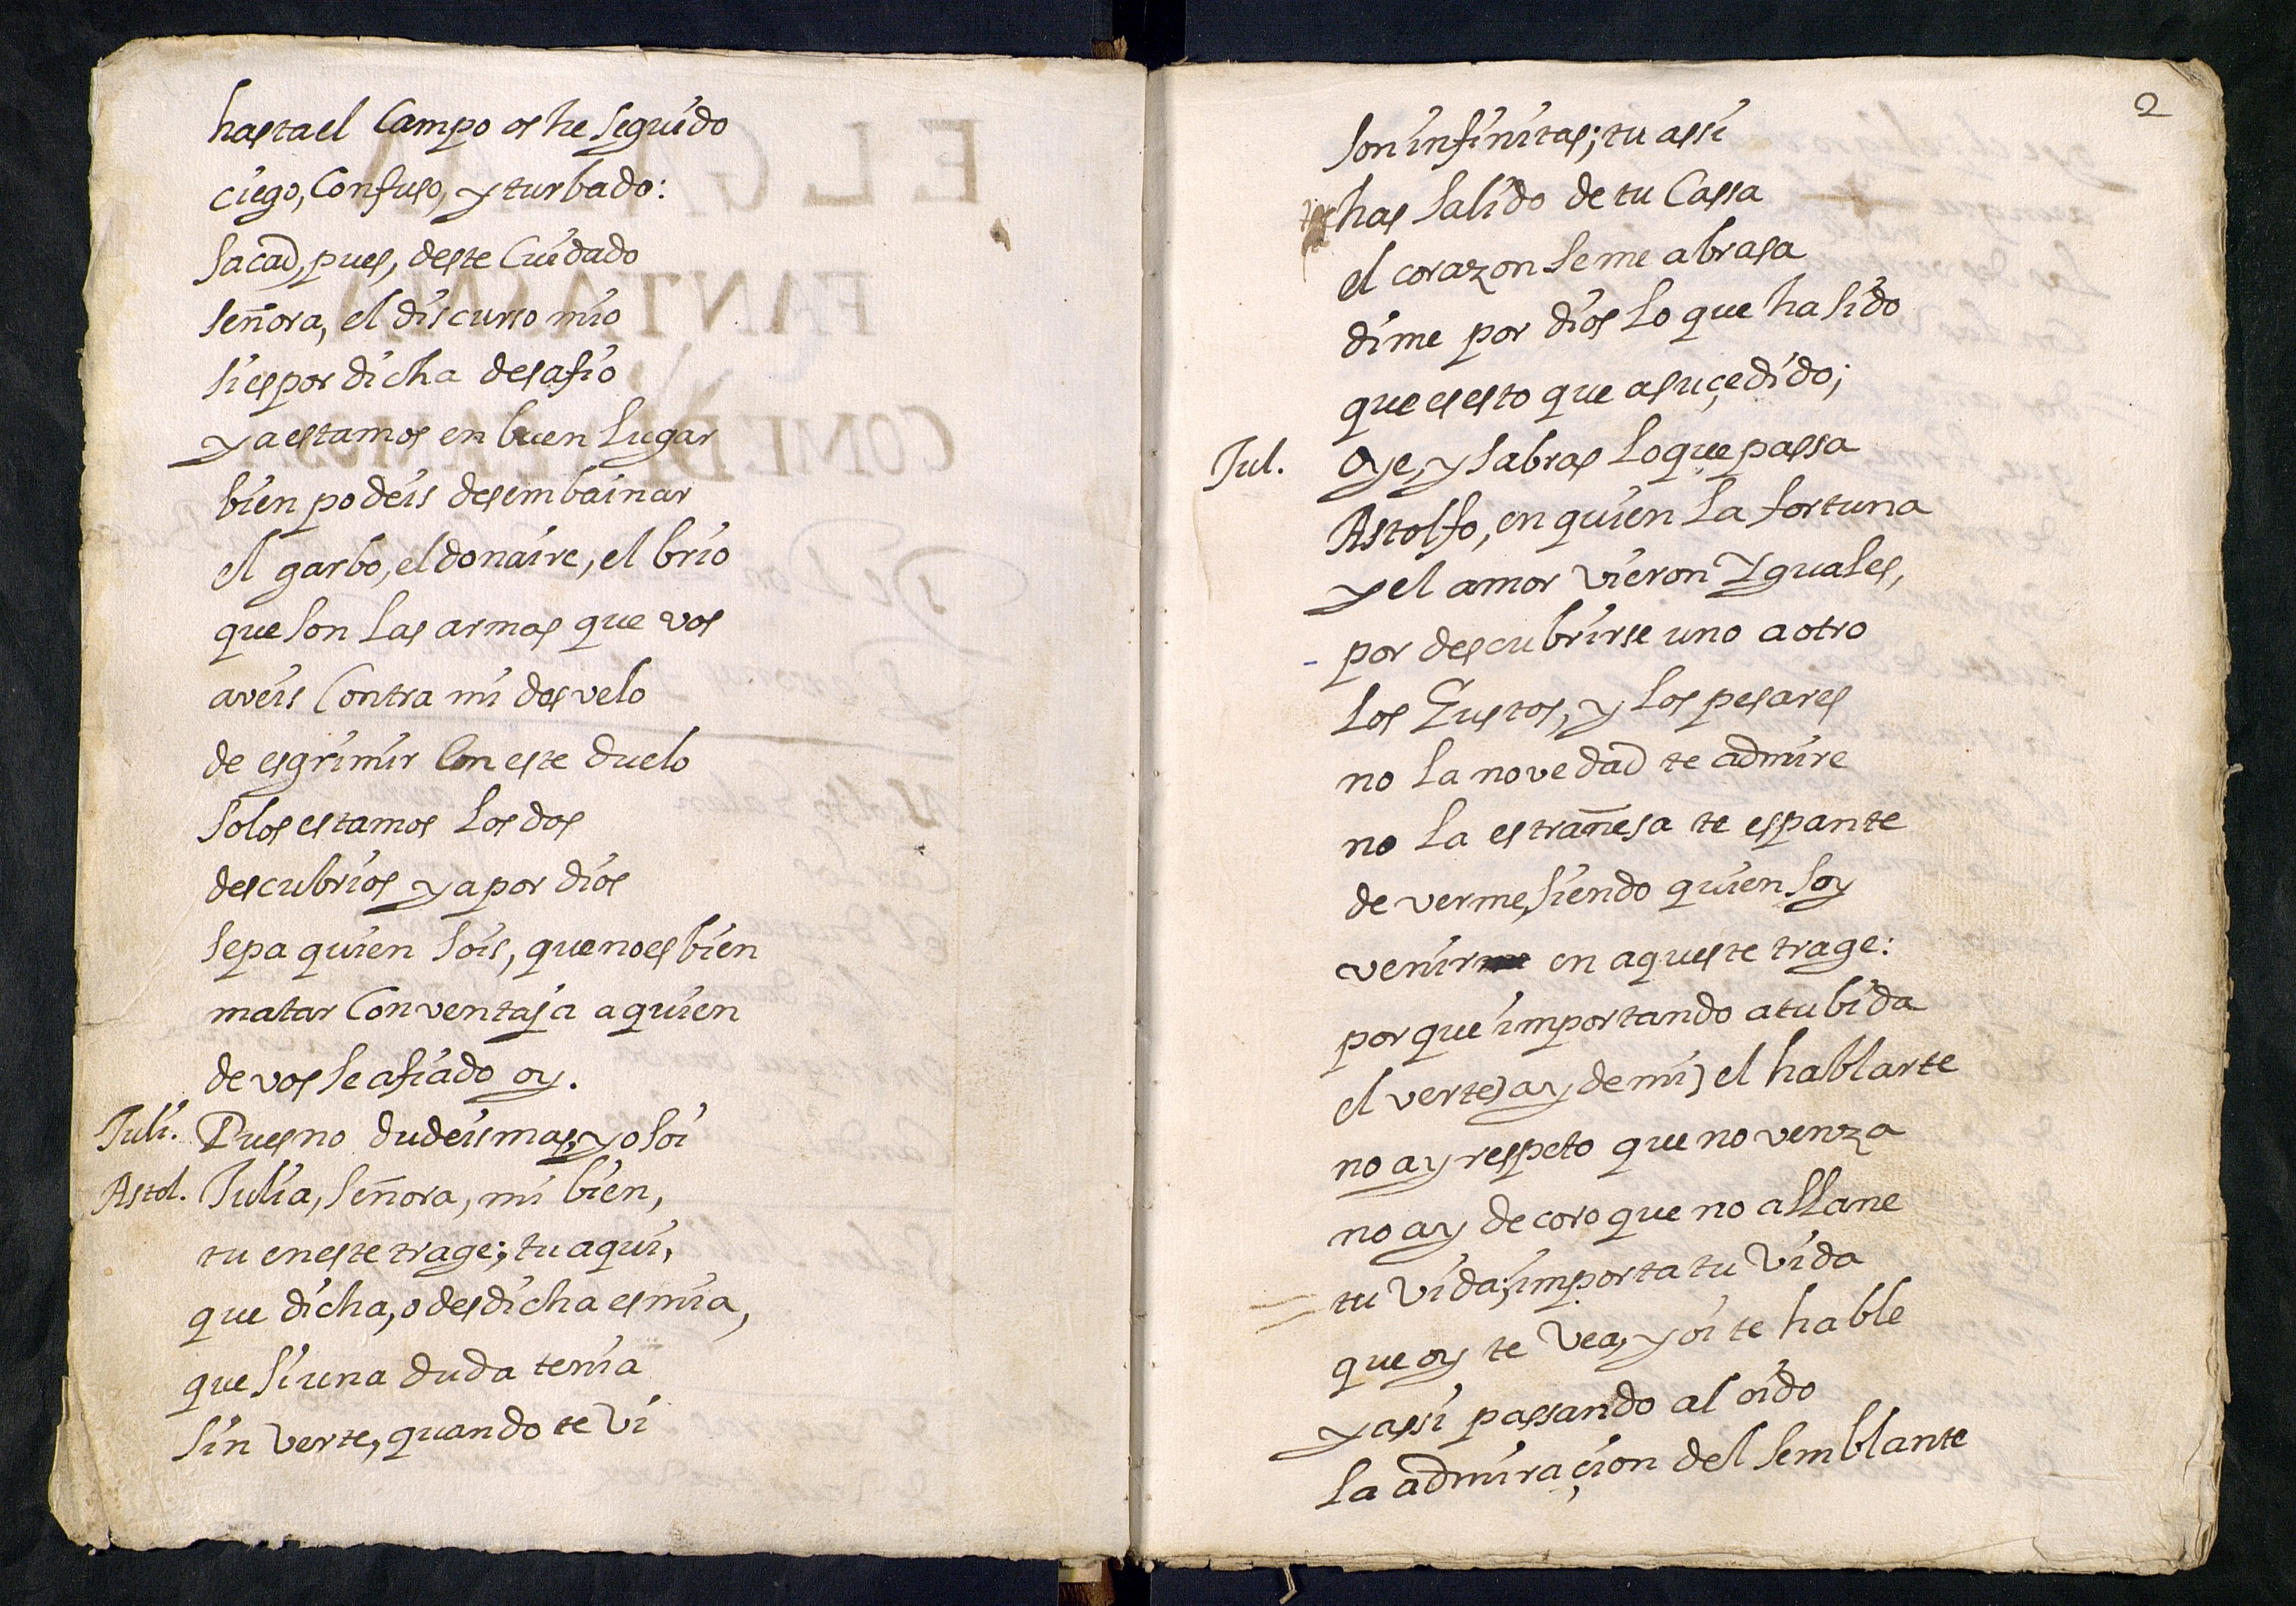 hasta el Campo os he seguido
ciego, Confuso, y turbado:
sacad, pues, deste Cuidado
señora, el discurso mio
si es por dicha desafio
ya estamos en buen lugar
bien podeis desembainar
el garbo, el donaire, el brio
que son las armas que vos
aveis Contra mi desvelo
de esgrimir Con este duelo
solos estamos los dos
descubrios ya por dios
sepa quien sois, que no es bien
matar Con ventaja a quien
de vos se a fiado oy.
Juli. Pues no dudeis mas, yo soi
Astol. Julia, señora, mi bien,
tu en este trage; tu aqui,
que dicha, o desdicha es mia,
que si una duda tenia
sin verte, quando te vi
2
son infinitas; tu assi
has salido de tu Cassa
el corazon se me abrasa
dime por dios lo que ha sido
que es esto que a suçedido;
Jul. Oye, y sabras lo que passa
Astolfo, en quien la fortuna
y el amor vieron Yguales,
por descubrirse uno a otro
los Gustos, y los pesares
no la novedad te admire
no la estrañesa te espante
de verme, siendo quien soy
venir en aqueste trage:
porque importando a tu bida
el verte) ay de mi) el hablarte
no ay respeto que no venza
no ay decoro que no allane
tu vida; importa tu vida
que oy te vea, y oi te hable
y assi passando al oido
la admiraçion del semblante